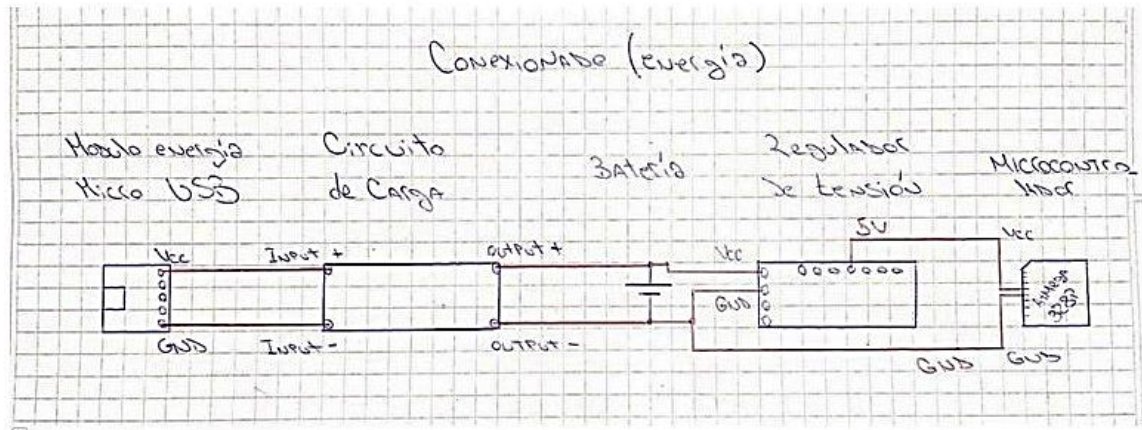 Conexionado (energía)
Modulo energía
Micro USB
Circuito
de Carga
Batería
Regulador
de tensión
Microcontro_
lador
Vcc
GND
Input +
Input -
output +
output -
Vcc
GND
5V
Vcc
GND
GND
ATmega
328P